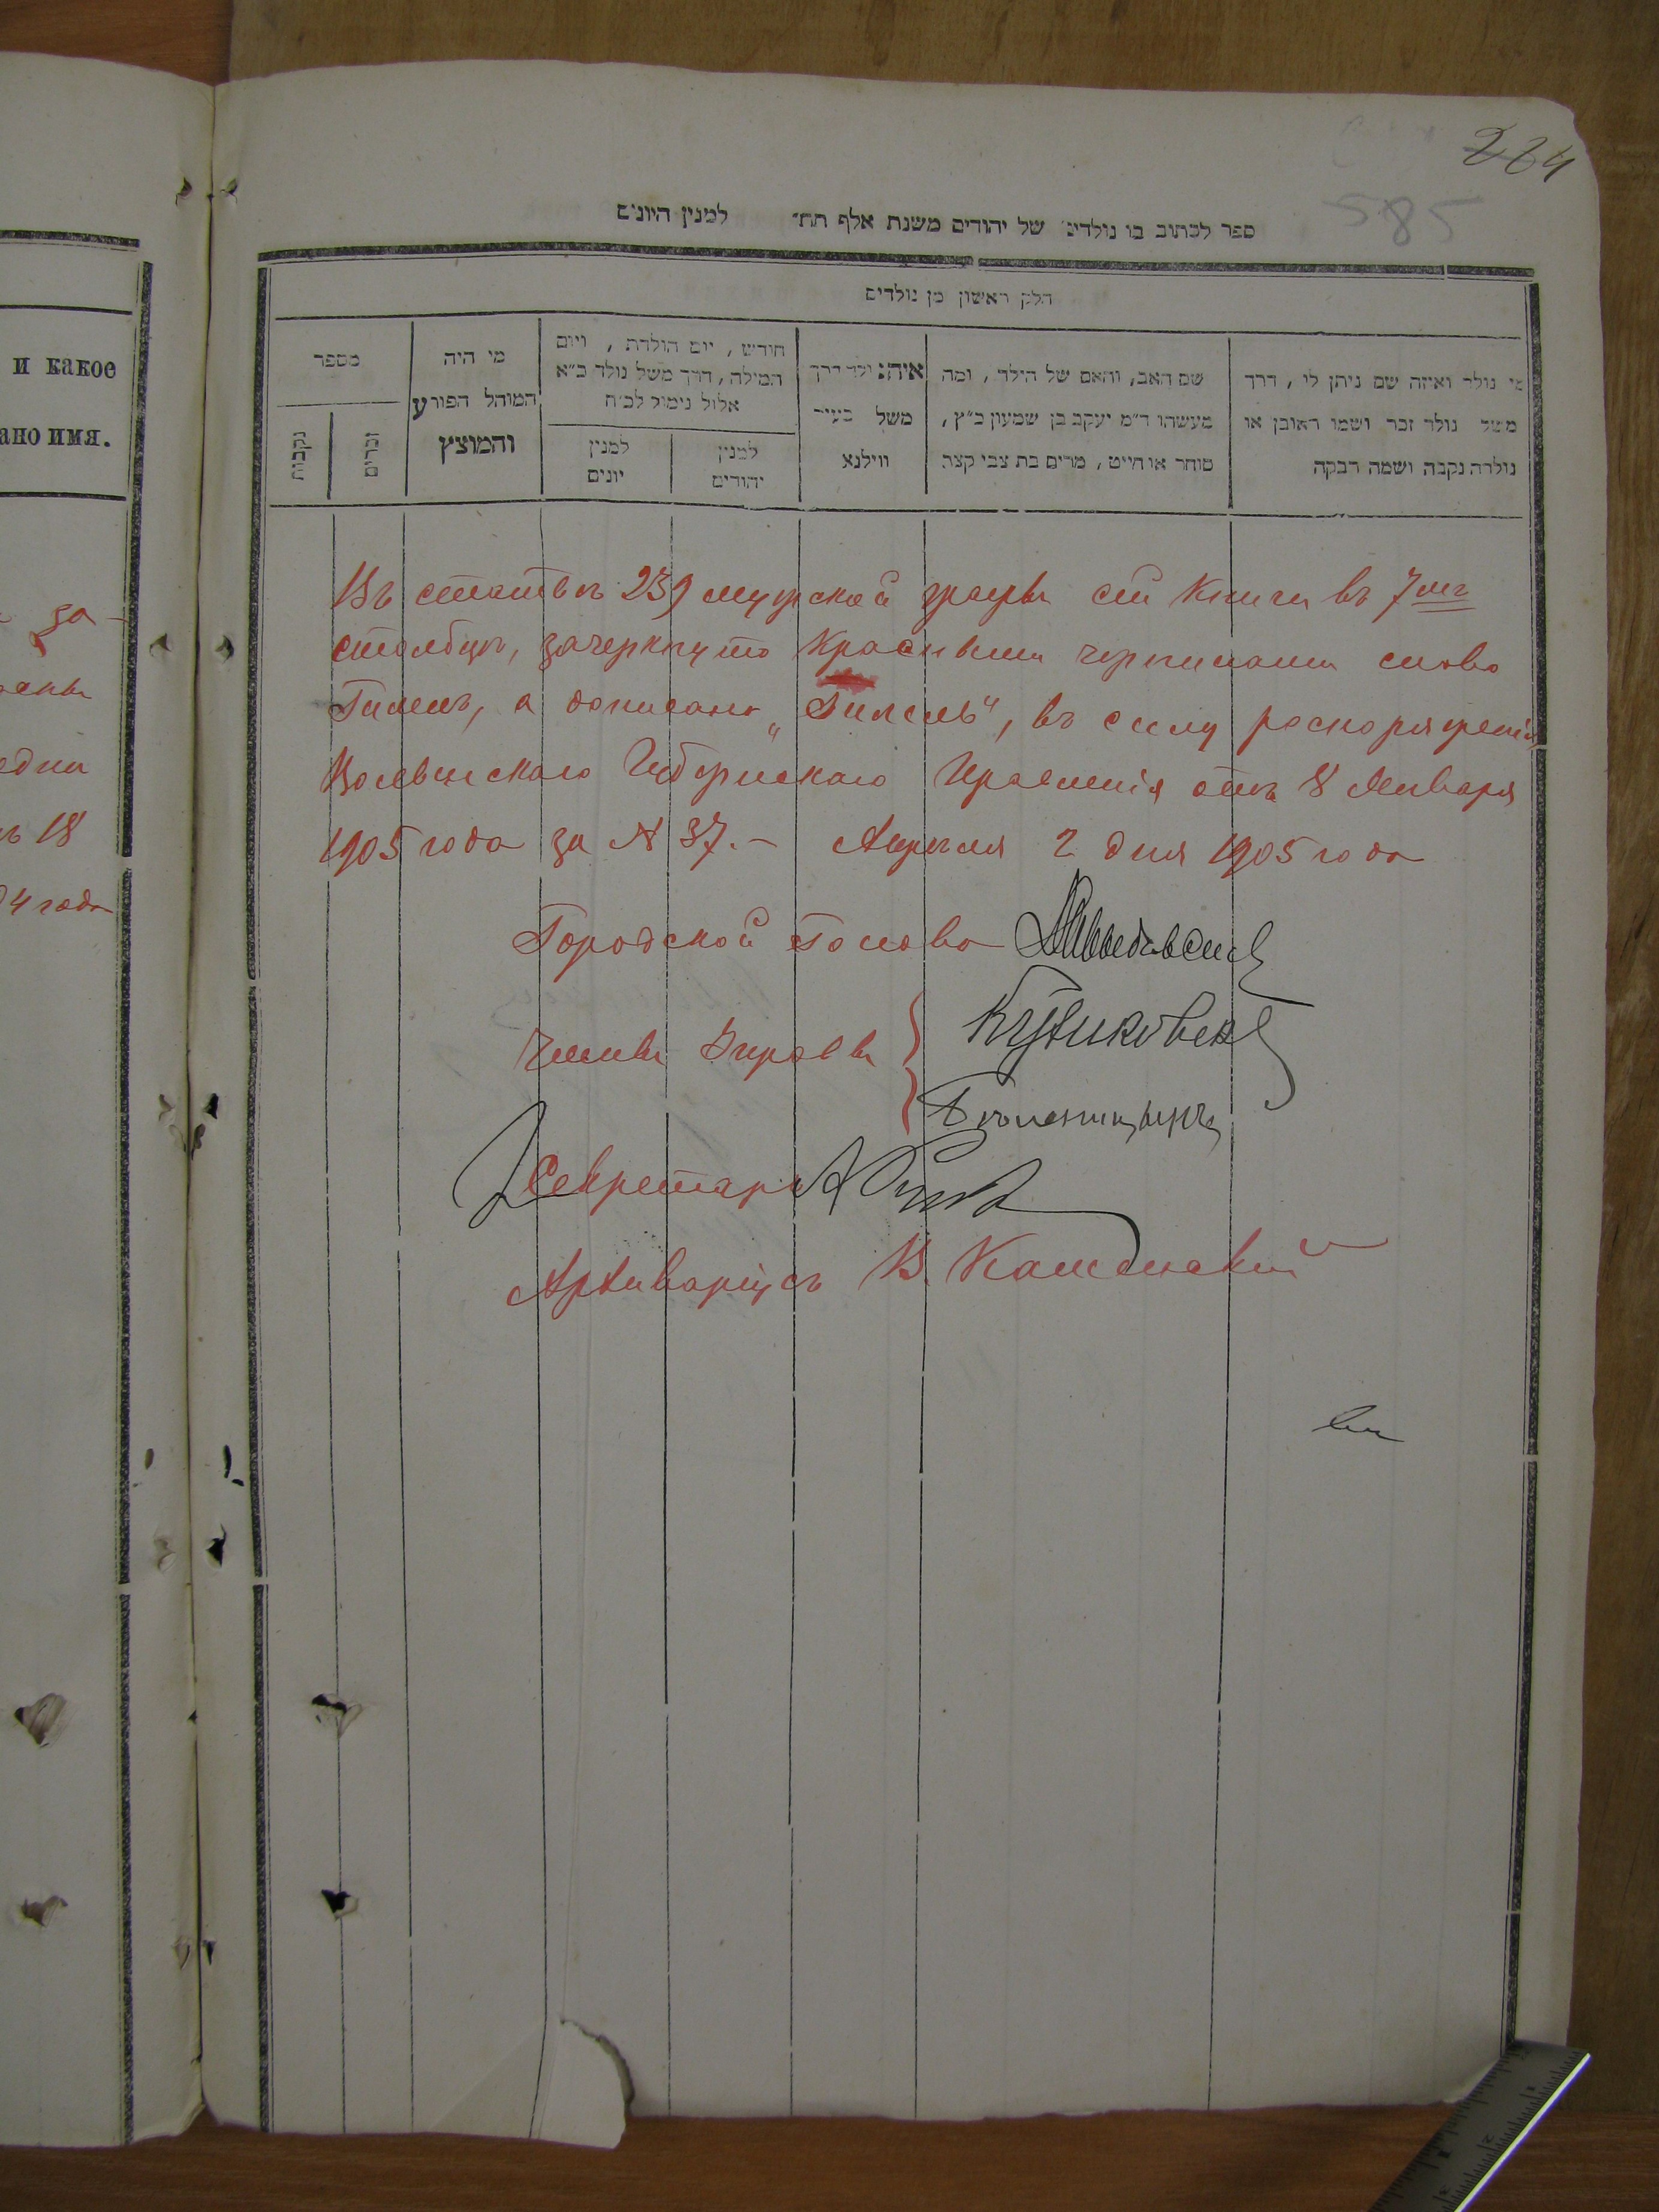 224
585
ספר לכתוב בו נולדים של יהודים משנת אלף תת״ למנין היונים
חלק ראשון מן נולדים
מי נולד ואיזה שם ניתן לו, דרך
משל נולד זכר ושמו ראובן או
נולדה נקבה ושמה רבקה
שם האב, והאם של הילד, ומה
מעשהו ד״מ יעקב בן שמעון כ״ץ,
סוחר או חייט, מרים בת צבי קצב
איה נולד דרך
משל בעיר
ווילנא
חודש, יום הולדת, ויום
המילה, דרך משל נולד ב״א
אלול נימול לב״ח
למנין
יהודים
למנין
יונים
מי היה
המוהל הפורע
והמוצץ
מספר
זכרים
נקבות
и какое
ано имя.
за-
едни
ъ 18
4 года
Въ статьѣ 239 мужской графы сей книги въ 7мъ
столбцѣ, зачеркнуто красными чернилами слово
а дописано „Гилель“, въ силу распоряженія
Волынскаго Губернскаго Правленія отъ 8 Января
1905 года за № 37.- Апрѣля 2 дня 1905 года
Городской Голова
Члены Управы
Секретарь
Архиваріусъ В.